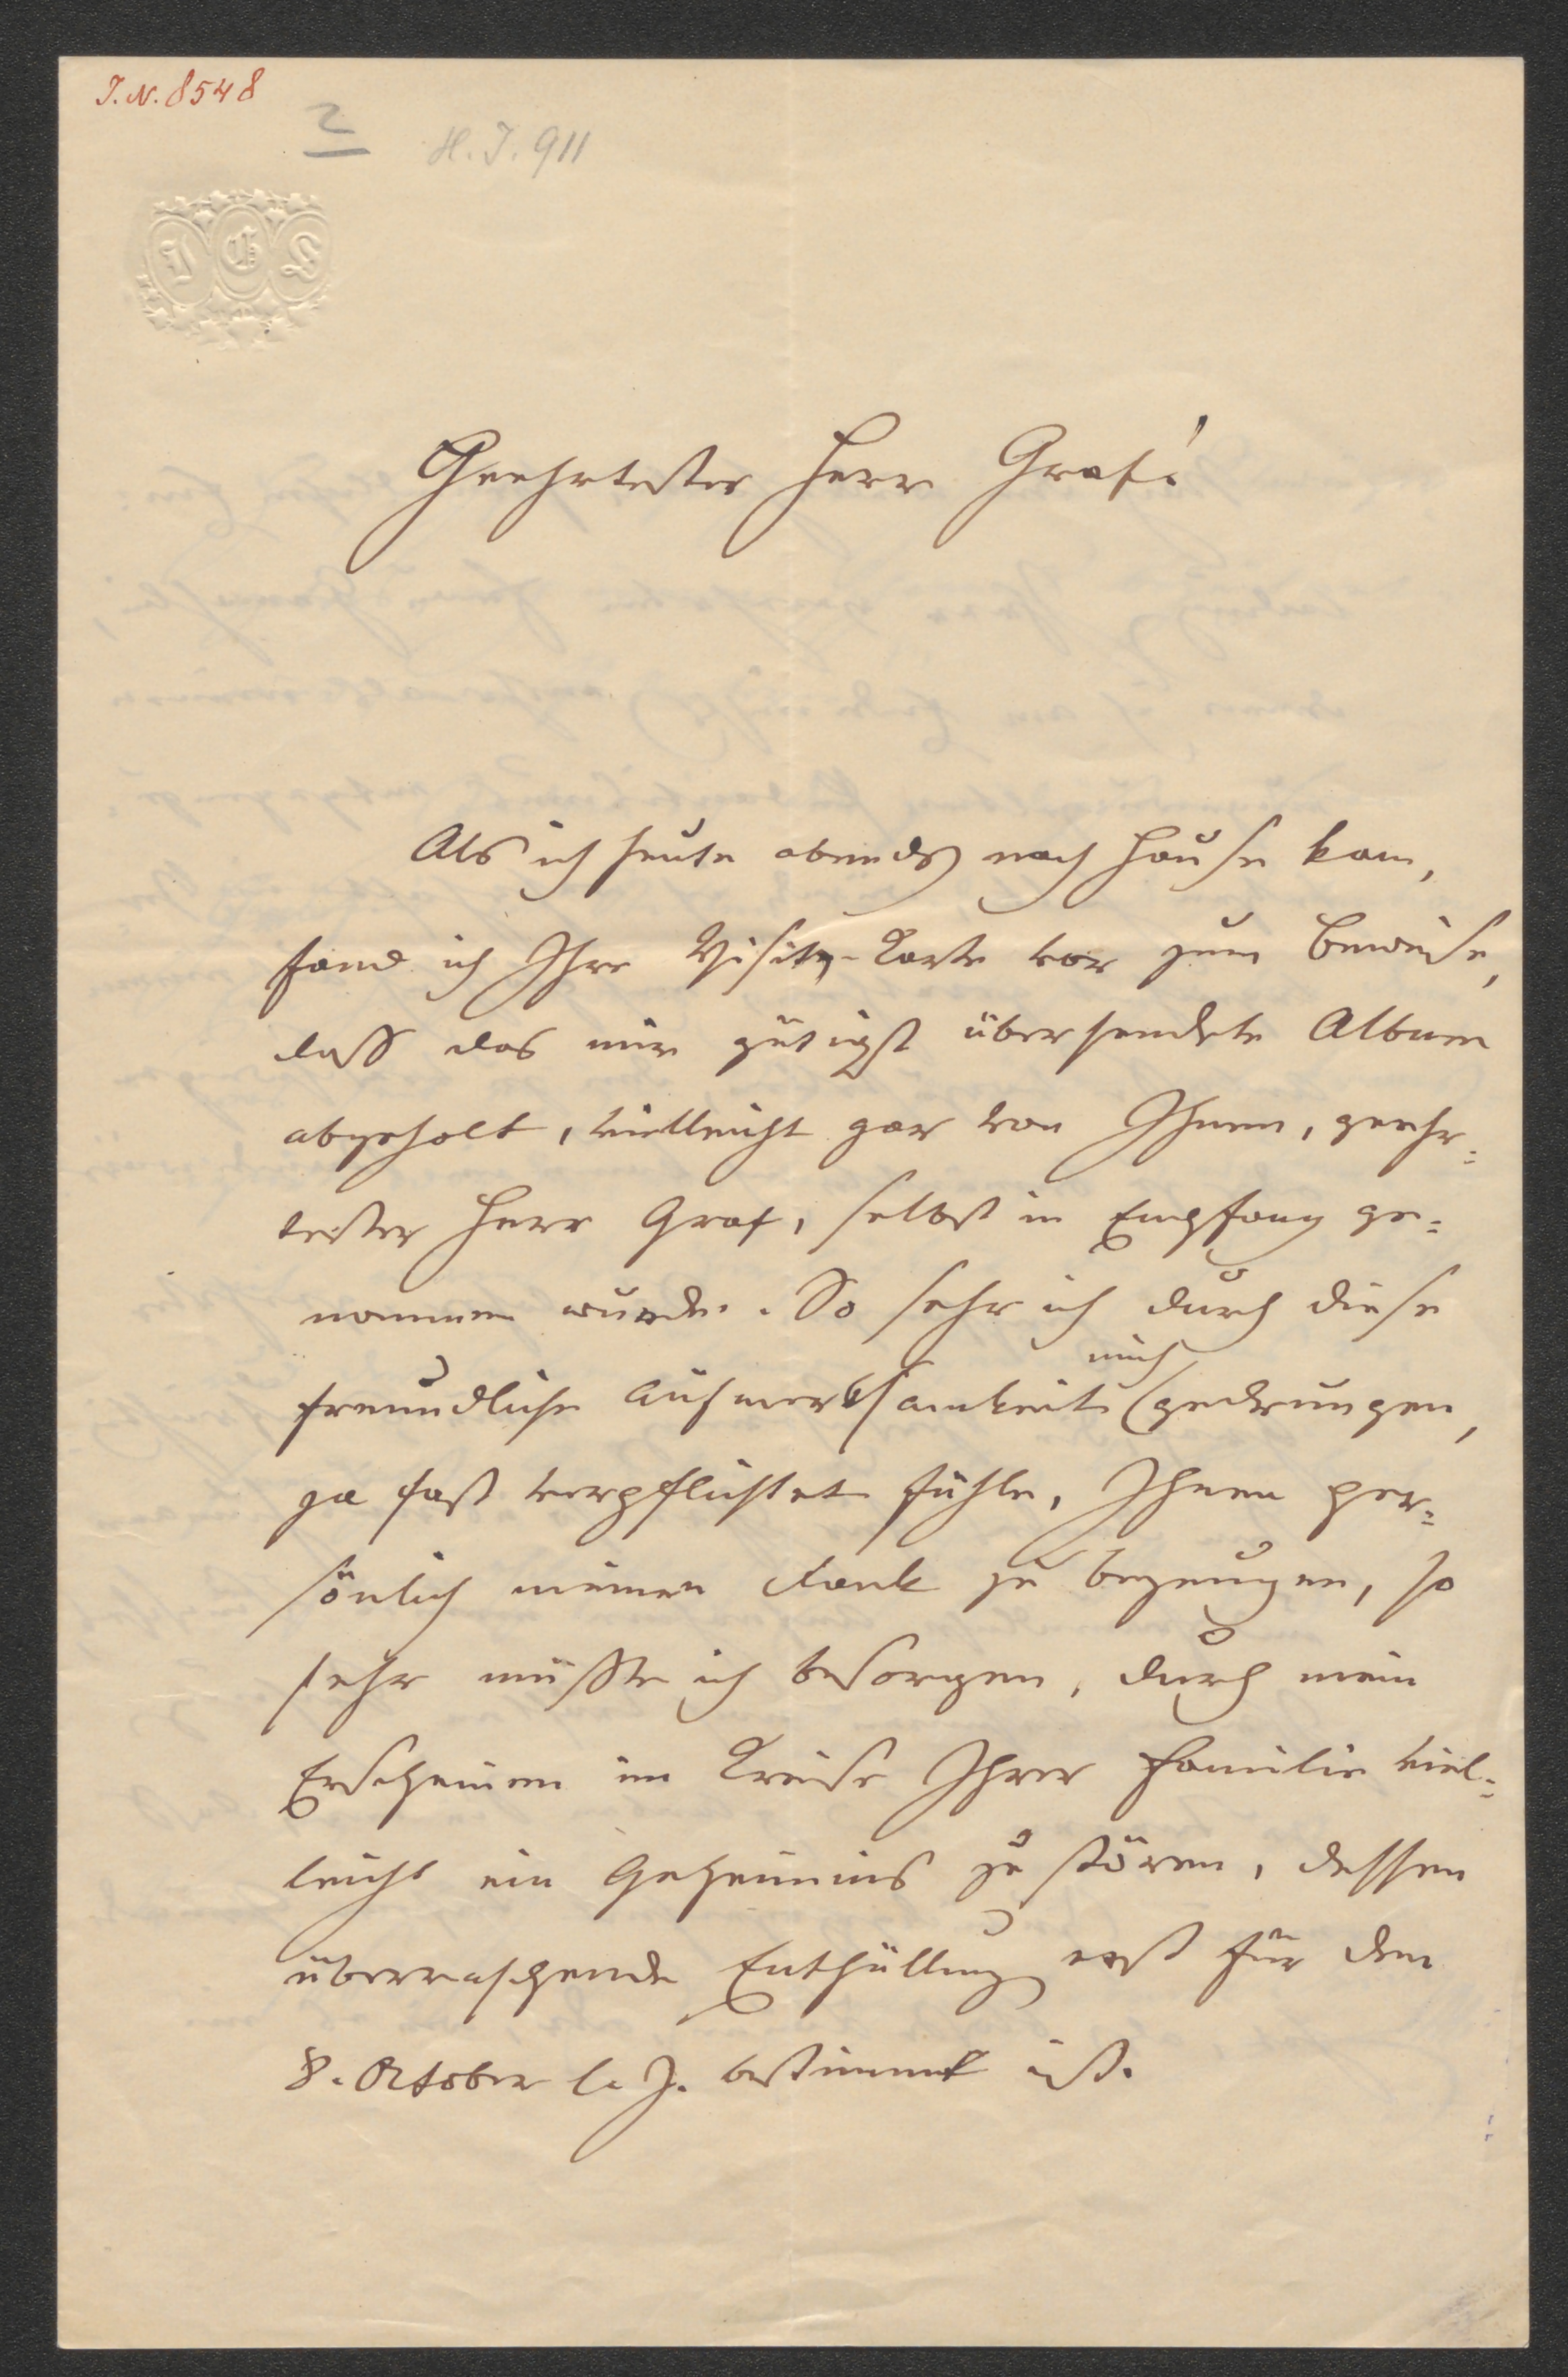 I.N. 8548
2
H.I. 911
I C L
Geehrtester Herr Graf!
Als ich heute abends nach Hause kam,
fand ich Ihre Visitz-Karte vor zum Beweise,
dass das mir gütigst übersendete Album
abgeholt, vielleicht gar von Ihnen, geehr=
tester Herr Graf, selbst in Empfang ge=
nommen wurde. So sehr ich durch diese
mich
freundliche Aufmerksamkeit gedrungen,
ja fast verpflichtet fühle, Ihnen per=
sönlich meinen Dank zu bezeugen, so
sehr müsste ich besorgen, durch mein
Erscheinen im Kreise Ihrer Familie viel=
leicht ein Geheimnis zu stören, dessen
überraschende Enthüllung erst für den
8. October l. J. bestimmt ist.